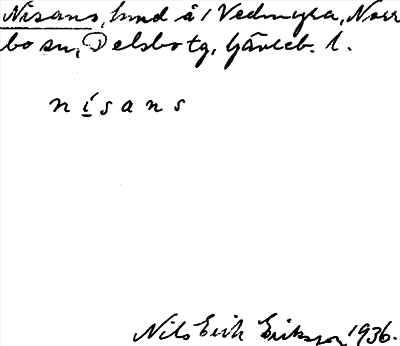 Nisans, hmd å 1 Vedmyra, Norr
bo sn, Delsbo tg, Gävleb. l.
nísans
Nils Erik Eriksson 1936.